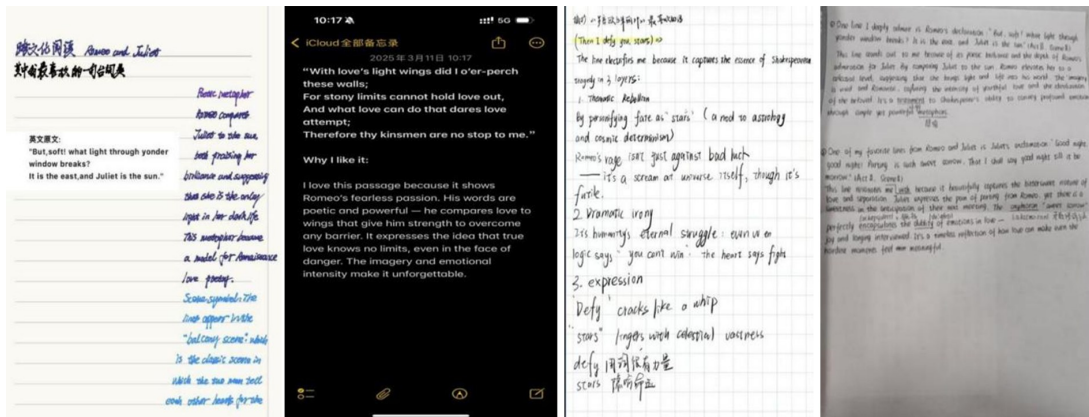 跨文化阅读 Romeo and Juliet
其中最喜欢的一句台词是
英文原文:
"But,soft! what light through yonder
window breaks?
It is the east,and Juliet is the sun."
Poetic metaphor
Romeo compares
Juliet to the sun,
both praising her
brilliance and suggesting
that she is the only
light in her dark life
This metaphor became
a model for Renaissance
love poetry.
Scene symbol: The
lines appear in the
"balcony scene", which
is the classic scene in
which the two men test
each other hearts for the
10:17
5G
iCloud全部备忘录
2025年3月11日 10:17
"With love's light wings did I o'er-perch
these walls;
For stony limits cannot hold love out,
And what love can do that dares love
attempt;
Therefore thy kinsmen are no stop to me."
Why I like it:
I love this passage because it shows
Romeo's fearless passion. His words are
poetic and powerful — he compares love to
wings that give him strength to overcome
any barrier. It expresses the idea that true
love knows no limits, even in the face of
danger. The imagery and emotional
intensity make it unforgettable.
(Then I defy you, stars) =>
The line electrifies me because it captures the essence of Shakespearean
tragedy in 3 layers:
1. Thematic Rebellion
By personifying fate as "stars" (a nod to astrology
and cosmic determinism)
Romeo's rage isn't just against bad luck
—— it's a scream at universe itself, though it's
futile.
2. Dramatic irony
It's humanity's eternal struggle: even when
logic says "you can't win" the heart says fight
3. expression
'Defy' cracks like a whip
"stars" lingers with celestial vastness
defy 用词很有力量
stars 隐喻命运
① One line I deeply admire is Romeo's declaration: "But, soft! what light through
yonder window breaks? It is the east, and Juliet is the sun." (Act II, Scene II)
This line stands out to me because of its poetic brilliance and the depth of Romeo's
admiration for Juliet. By comparing Juliet to the sun, Romeo elevates her to a
celestial level, suggesting that she brings light and life into his world. The imagery
is vivid and romantic, capturing the intensity of youthful love and the idealization
of the beloved. It's a testament to Shakespeare's ability to convey profound emotion
through simple yet powerful metaphors.
② One of my favorite lines from Romeo and Juliet is Juliet's exclamation: "Good night,
good night! Parting is such sweet sorrow, That I shall say good night till it be
morrow." (Act II, Scene II)
This line resonates me with because it beautifully captures the bittersweet nature of
love and separation. Juliet expresses the pain of parting from Romeo, yet there is a
sweetness in the anticipation of their next meeting. The oxymoron "sweet sorrow"
perfectly encapsulates the duality of emotions in love —
joy and longing intertwined. It's a timeless reflection of how love can make even the
hardest moments feel meaningful.